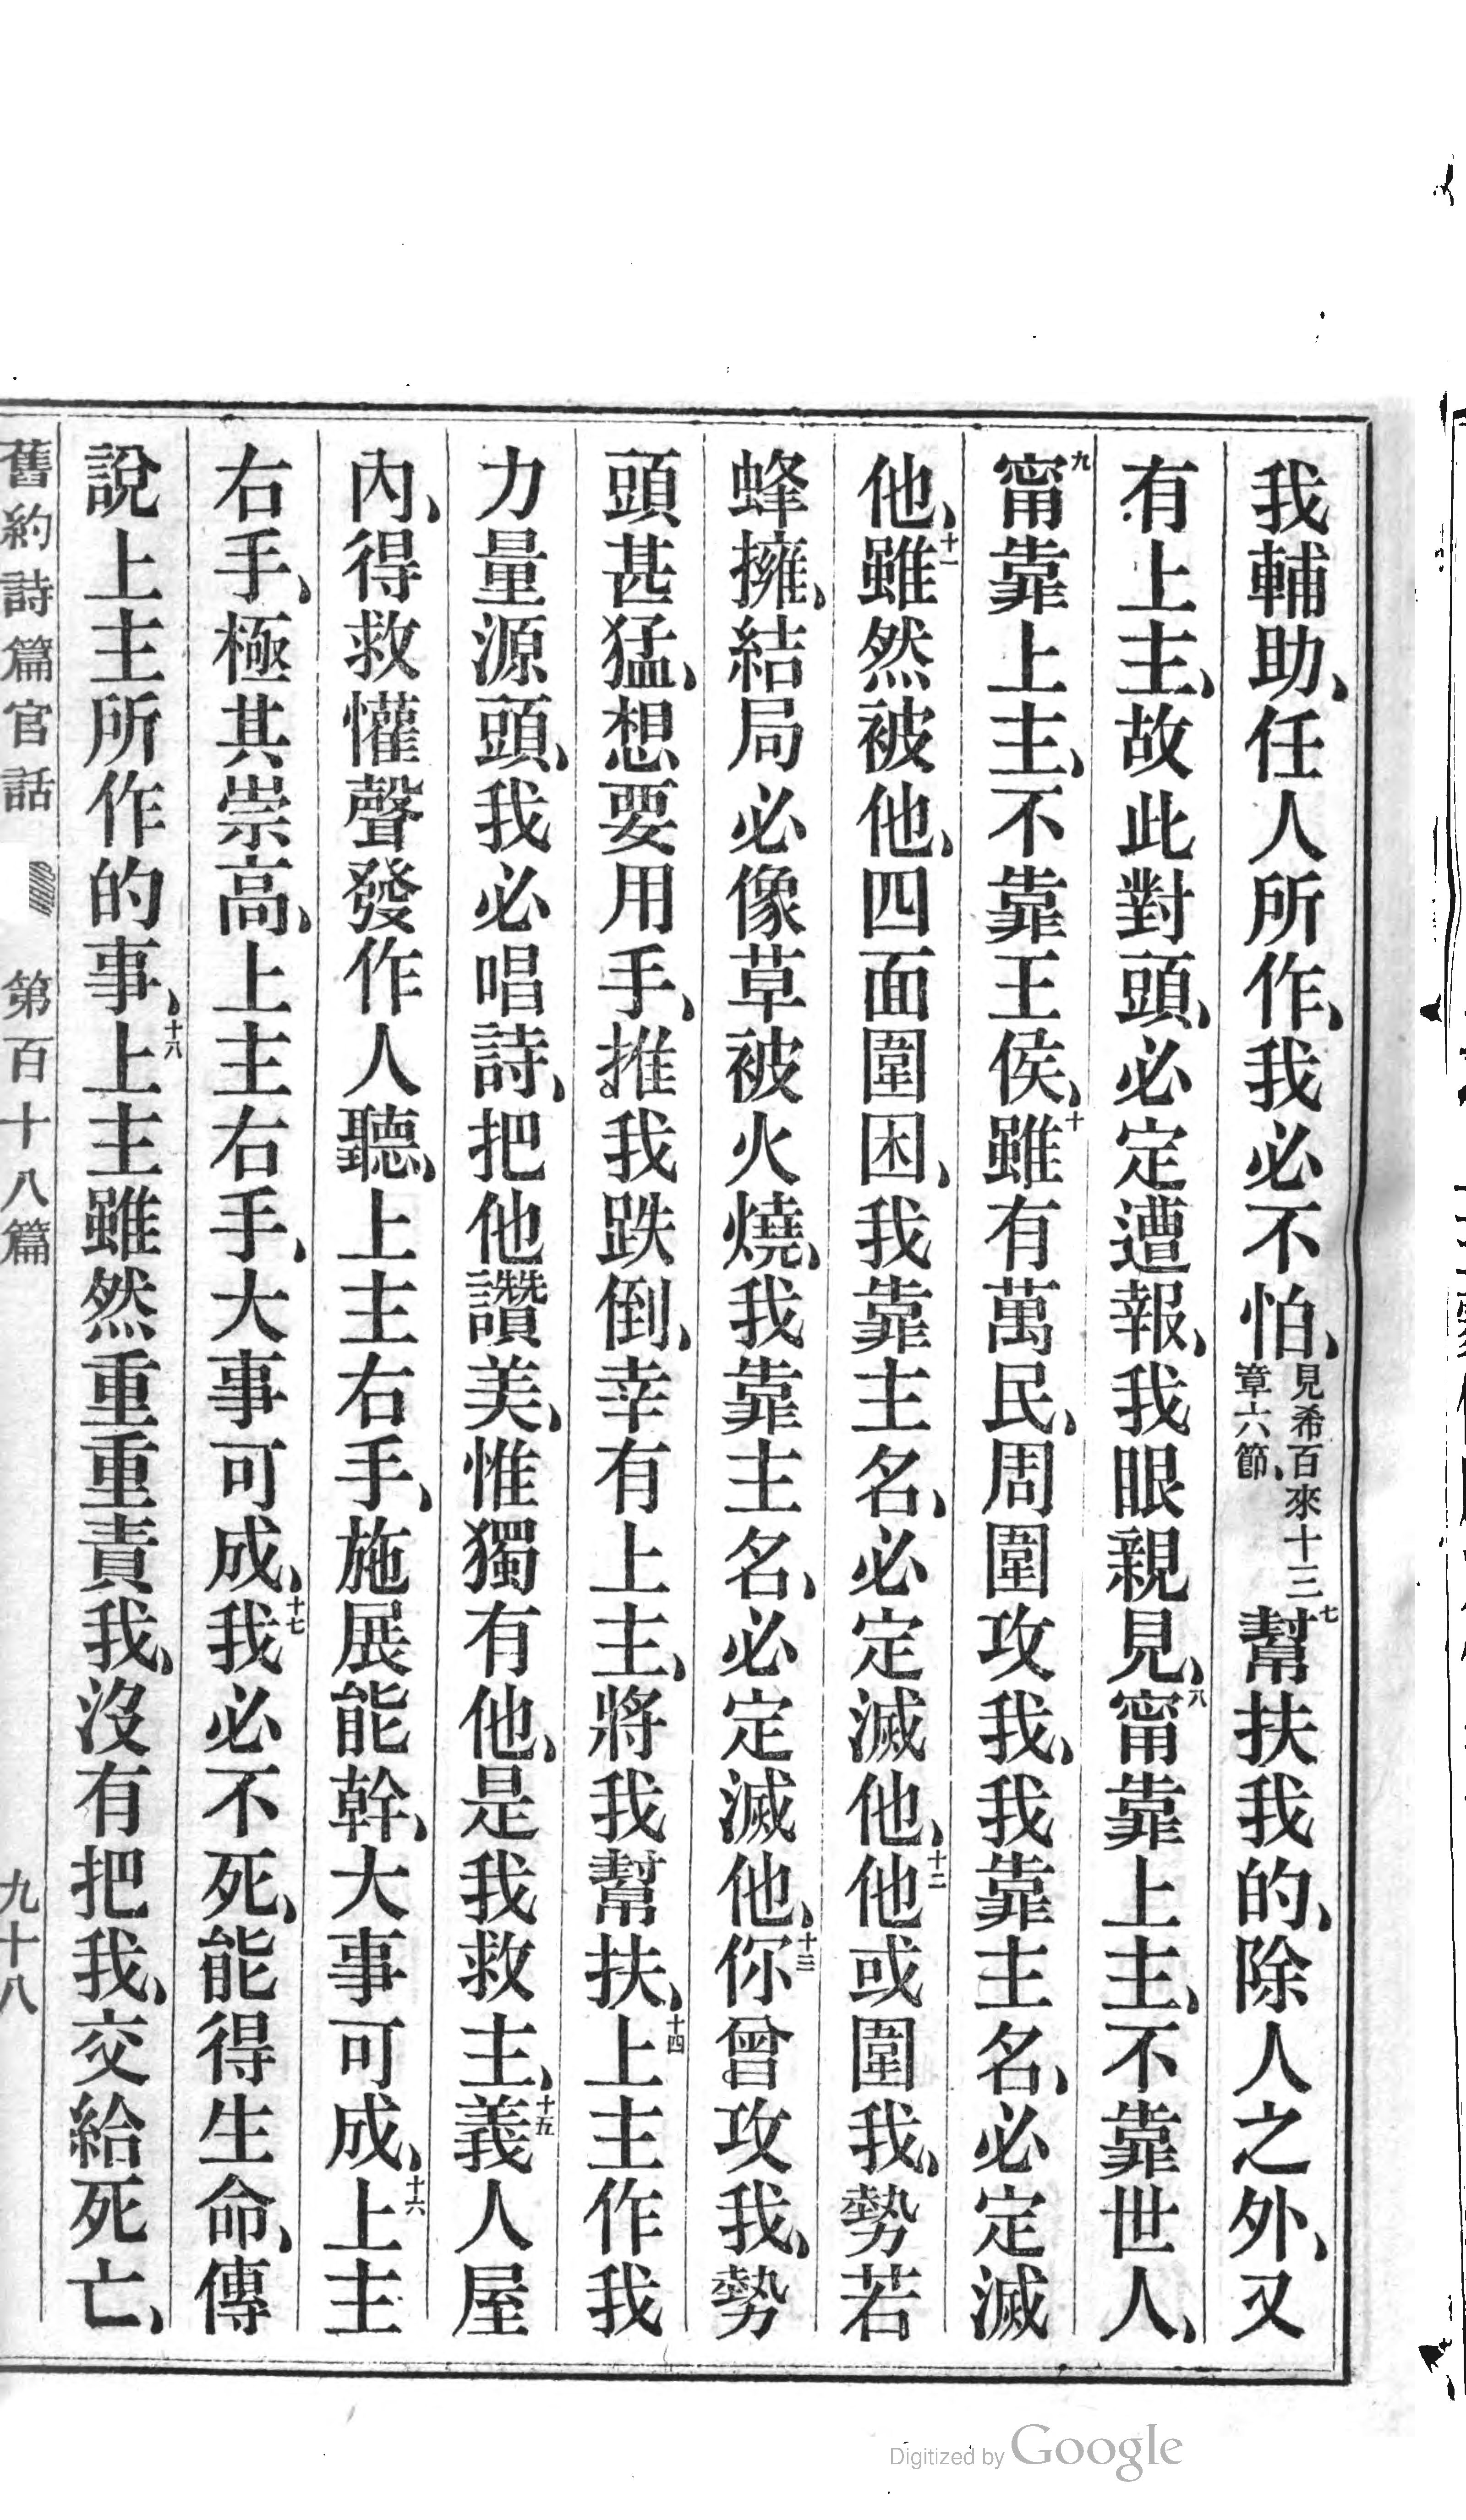 我輔助、任人所作、我必不怕、見希百來十三章六節、七幫扶我的、除人之外、又
有上主、故此對頭、必定遭報、我眼親見、八甯靠上主、不靠世人、
九甯靠上主、不靠王侯、十雖有萬民、周圍攻我、我靠主名、必定滅
他、十一雖然被他、四面圍困、我靠主名、必定滅他、十二他或圍我、勢若
蜂擁、結局必像草被火燒、我靠主名、必定滅他、十三你曾攻我、勢
頭甚猛、想要用手、推我跌倒、幸有上主、將我幫扶、十四上主作我
力量源頭、我必唱詩、把他讚美、惟獨有他、是我救主、十五義人屋
內、得救懽聲發作人聽、上主右手、施展能幹、大事可成、十六上主
右手、極其崇高、上主右手、大事可成、十七我必不死、能得生命、傳
說上主所作的事、十八上主雖然重重責我、沒有把我、交給死亡、
舊約詩篇官話 第百十八篇 九十八
Digitized by Google